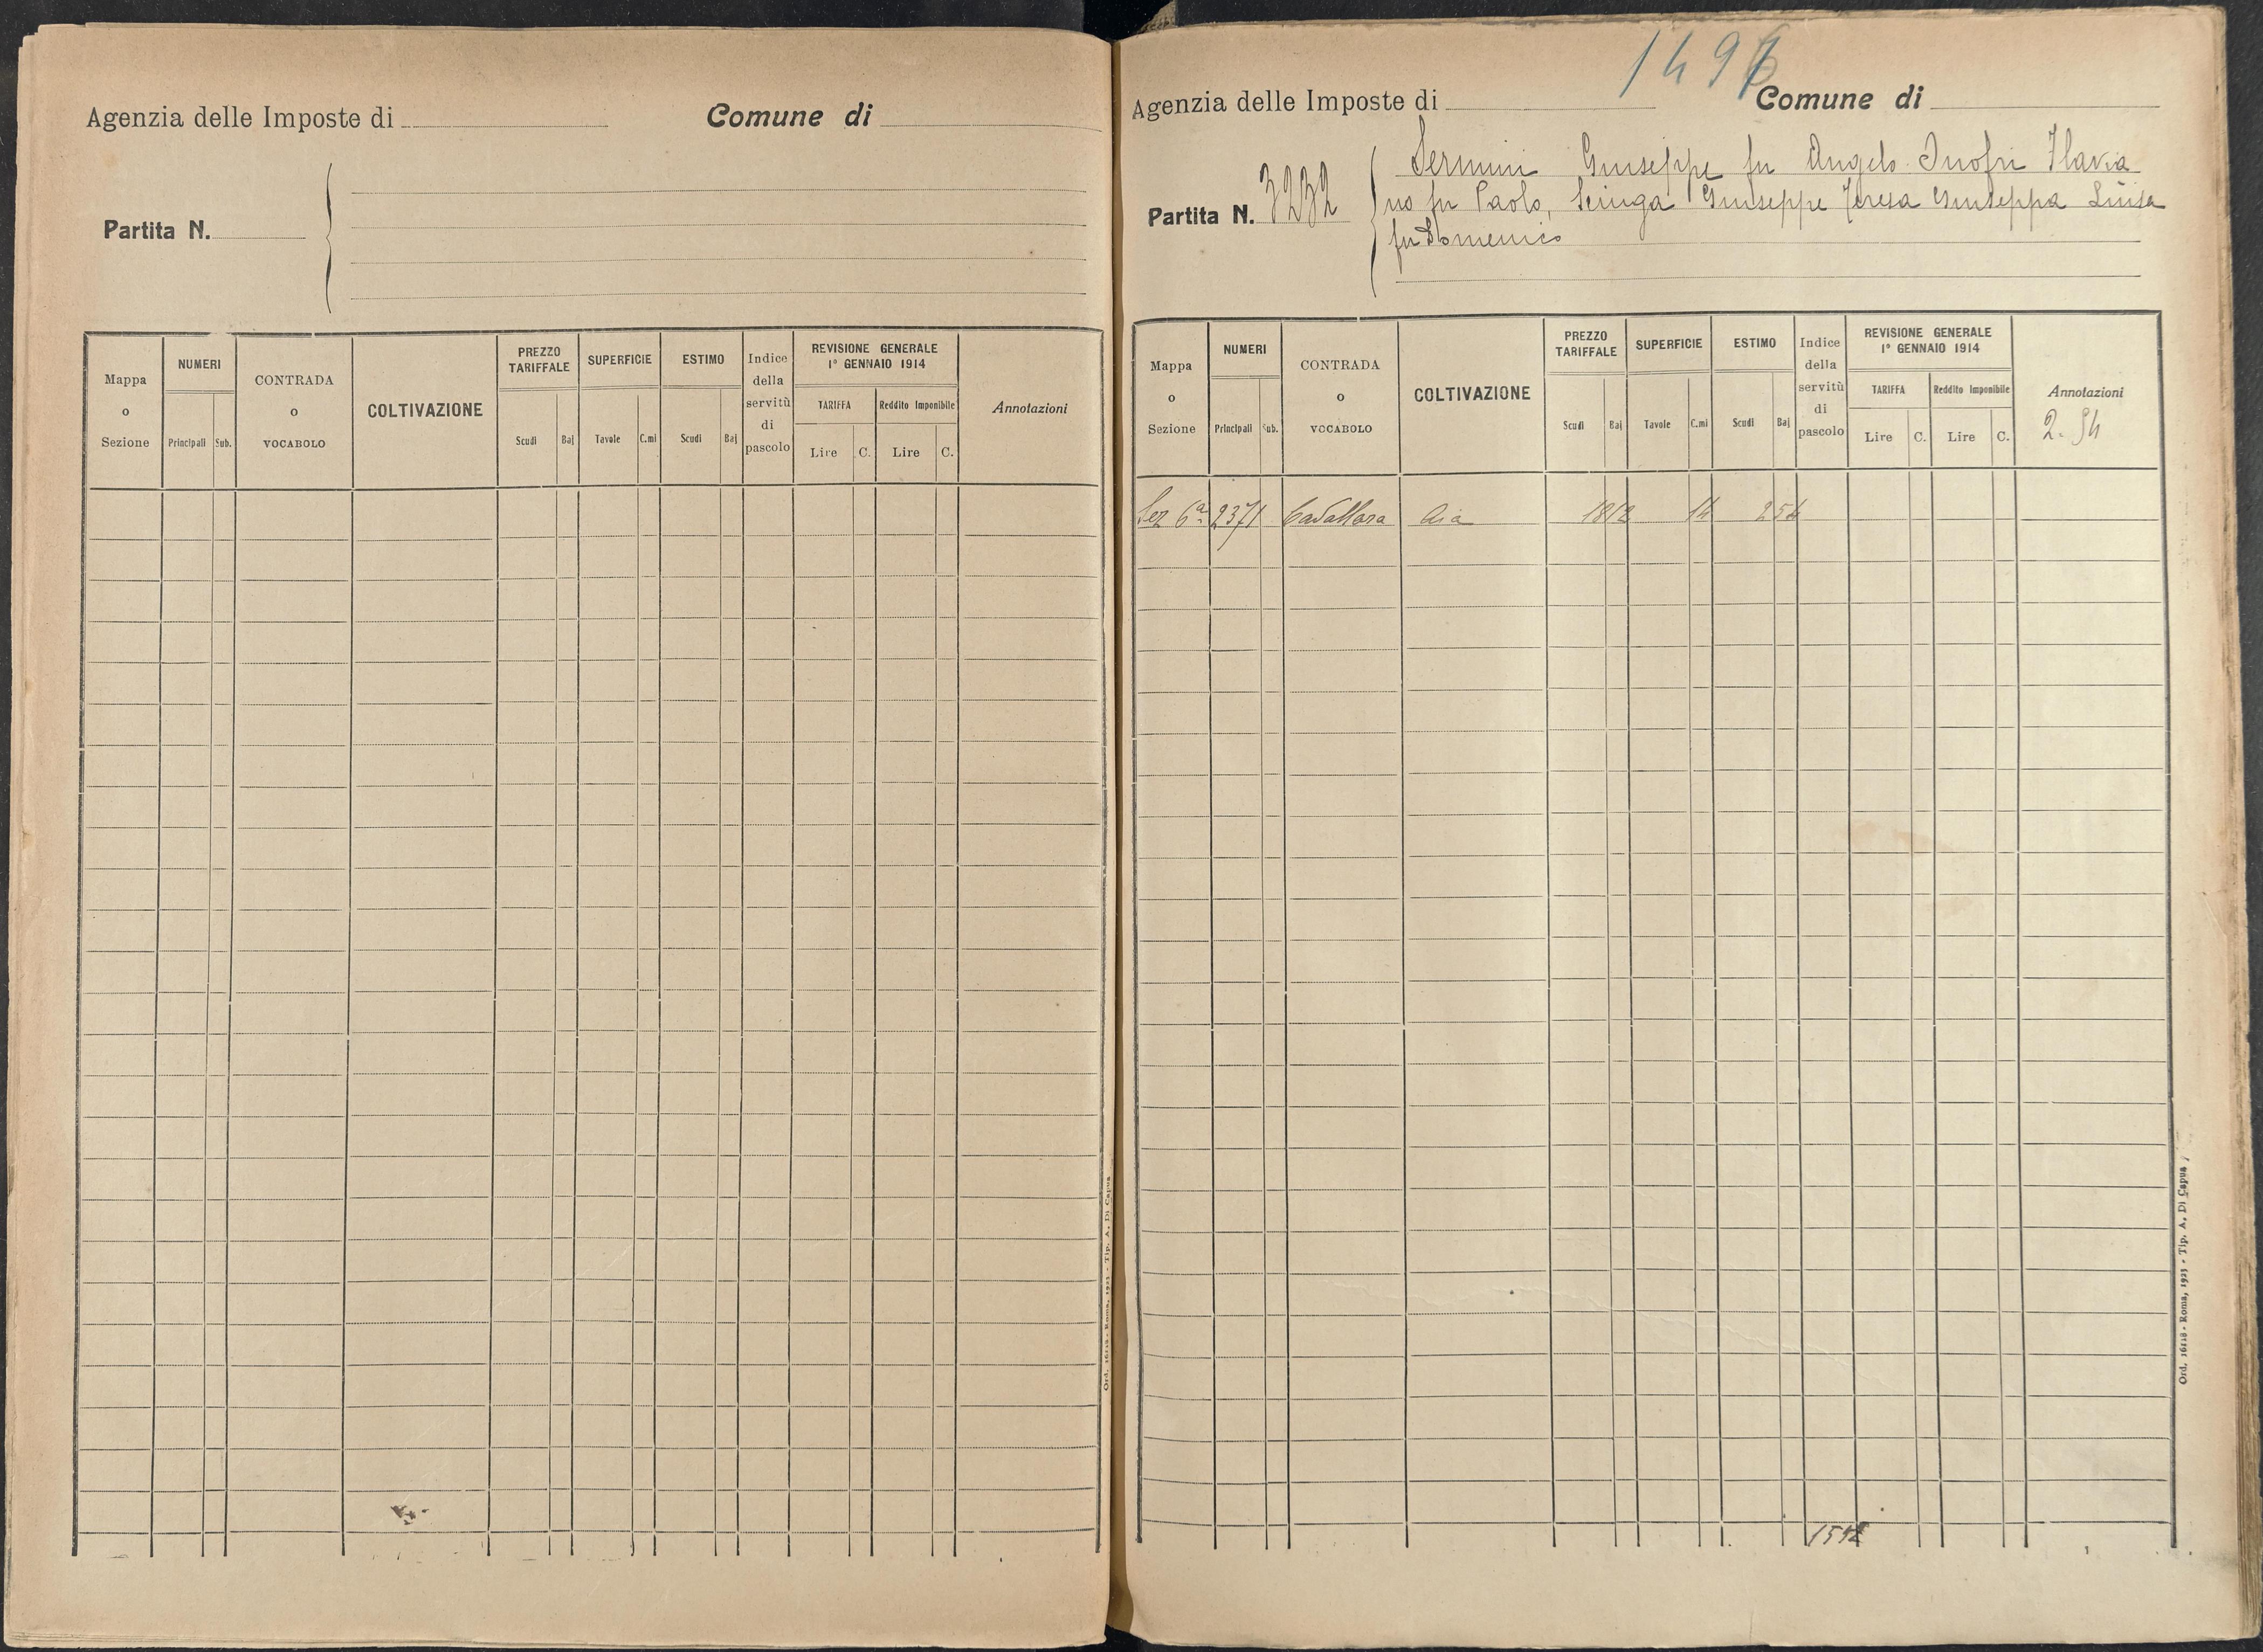 Agenzia delle Imposte di Comune di
Partita N.
Mappa o Sezione
NUMERI
Principali Sub.
CONTRADA o VOCABOLO
COLTIVAZIONE
PREZZO TARIFFALE
Scudi Baj
SUPERFICIE
Tavole C.mi
ESTIMO
Scudi Baj
Indice della servitù di pascolo
REVISIONE GENERALE
1° GENNAIO 1914
TARIFFA Reddito Imponibile
Lire C. Lire C.
Annotazioni
Ord. 16218 - Roma, 1923 - Tip. A. Di Capua
149
Agenzia delle Imposte di Comune di
Partita N. 3232
Sermini Giuseppe fu Angelo Onofri Flavia
no fu Paolo, Giuseppe Teresa Giuseppa Luisa
fu Domenico
Mappa o Sezione
NUMERI
Principali Sub.
CONTRADA o VOCABOLO
COLTIVAZIONE
PREZZO TARIFFALE
Scudi Baj
SUPERFICIE
Tavole C.mi
ESTIMO
Scudi Baj
Indice della servitù di pascolo
REVISIONE GENERALE
1° GENNAIO 1914
TARIFFA Reddito Imponibile
Lire C. Lire C.
Annotazioni
2.54
Sez 6ª 2371 Cavallara Aia 1812 14 254
Ord. 16218 - Roma, 1923 - Tip. A. Di Capua